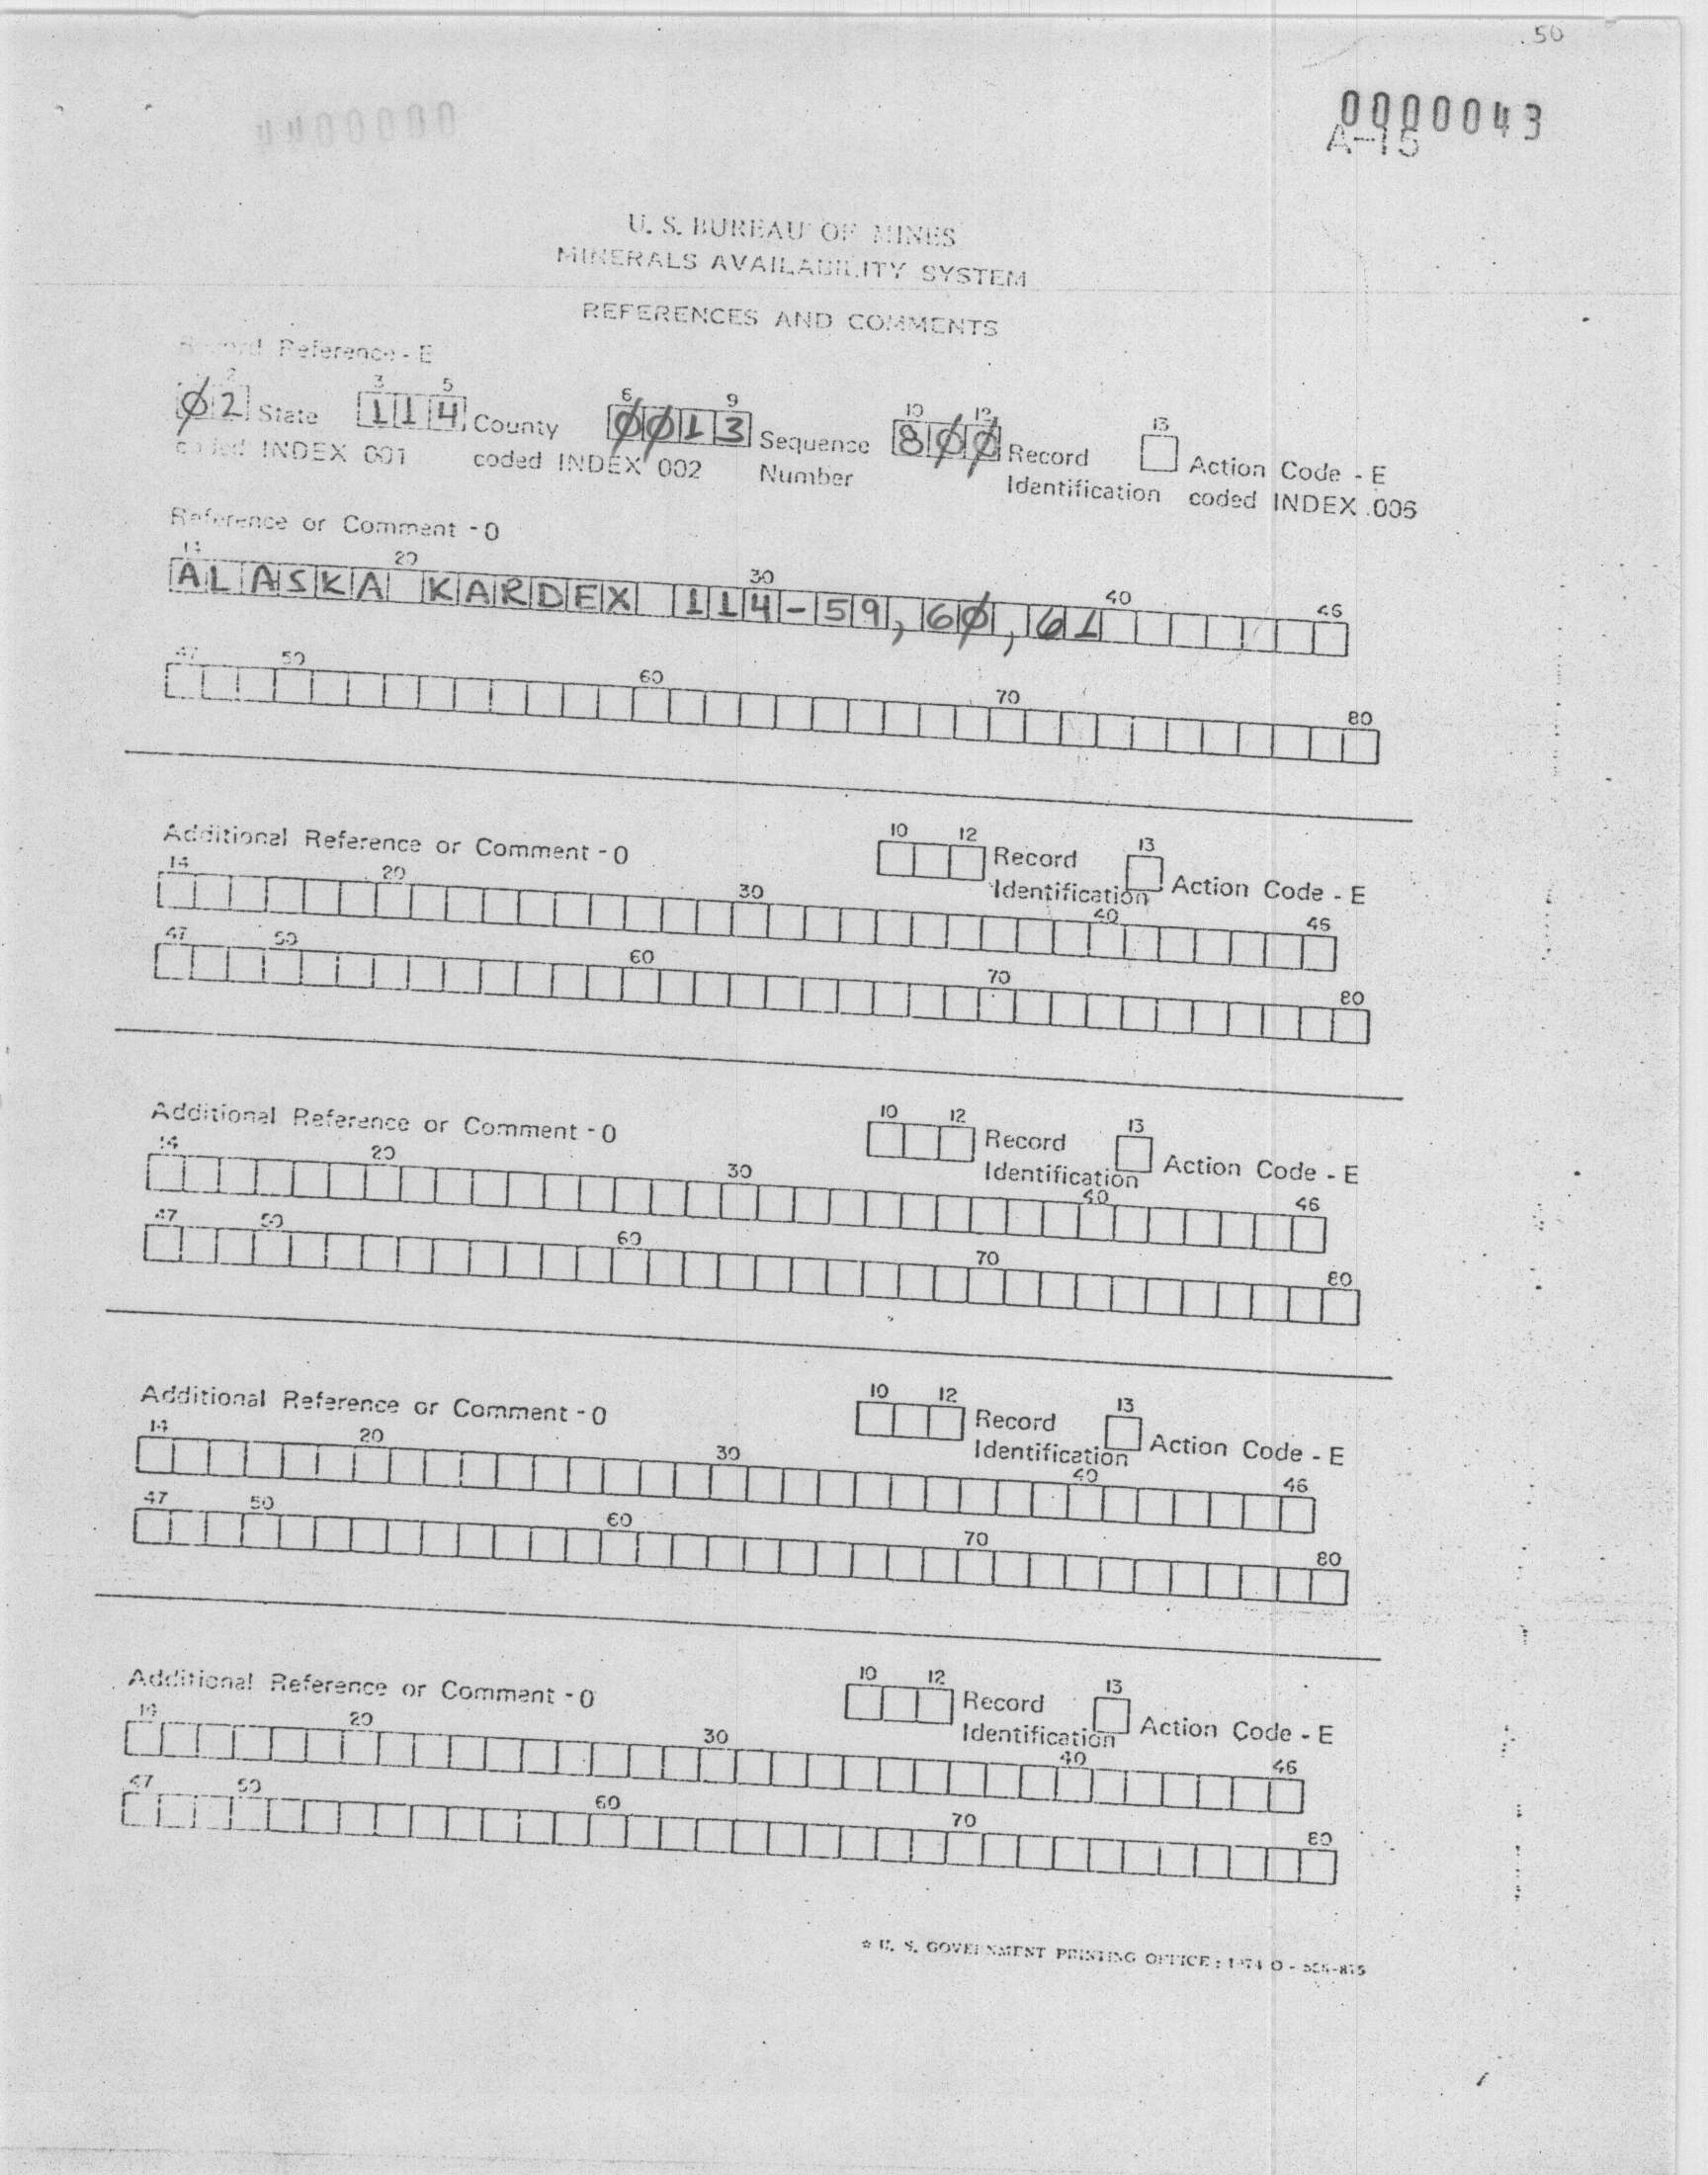 .50
0000043
A-15
U. S. BUREAU OF MINES
MINERALS AVAILABILITY SYSTEM
REFERENCES AND COMMENTS
Record Reference - E
2 3 5 6 9 10 12 13
Ø2 State 114 County ØØ13 Sequence Number 8ØØ Record Identification Action Code - E
coded INDEX 001 coded INDEX 002 coded INDEX .006
Reference or Comment - O
14 20 30 40 46
ALASKA KARDEX 114-59,6Ø,61
47 50 60 70 80
Additional Reference or Comment - O 10 12 Record Identification 13 Action Code - E
14 20 30 40 46
47 50 60 70 80
Additional Reference or Comment - O 10 12 Record Identification 13 Action Code - E
14 20 30 40 46
47 50 60 70 80
Additional Reference or Comment - O 10 12 Record Identification 13 Action Code - E
14 20 30 40 46
47 50 60 70 80
Additional Reference or Comment - O 10 12 Record Identification 13 Action Code - E
14 20 30 40 46
47 50 60 70 80
☆ U. S. GOVERNMENT PRINTING OFFICE : 1974 O -